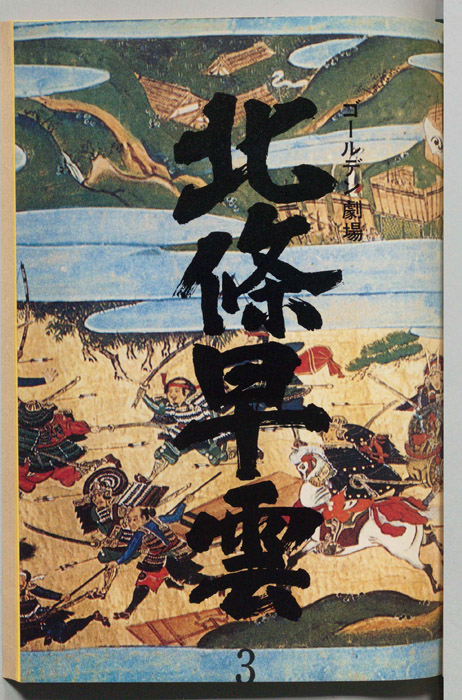 ゴールデン劇場
北條早雲
3